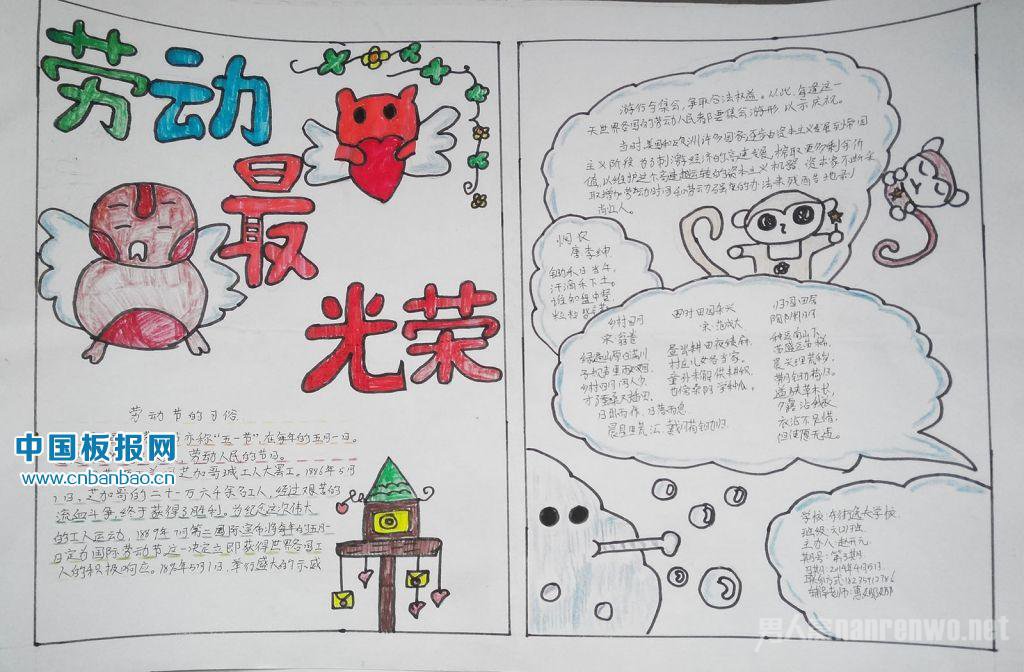 劳动
最
光荣
劳动节的习俗
亦称“五一节”，在每年的五月一日。
劳动人民的节日。
芝加哥城工人大罢工。1886年5月
1日，芝加哥的二十一万六千余名工人，经过艰苦的
流血斗争，终于获得了胜利。为纪念这次伟大
的工人运动，1889年7月第二国际宣布将每年的五月一
日定为国际劳动节。这一决定立即获得世界各国工
人的积极响应。1890年5月1日，
中国板报网
www.cnbanbao.cn
游行与集会，争取合法权益。从此，每逢这一
天世界各国的劳动人民都要集会游形，以示庆祝。
当时，美国和欧洲许多国家逐步由资本主义发展到帝国
主义阶段，为了刺激经济的高速发展，榨取更多剩余价
值，以维护这个高速运转的资本主义机器，资本家不断采
取增加劳动时间和劳动强度的办法来残酷地剥
削工人。
悯农
唐 李绅
锄禾日当午，
汗滴禾下土。
谁知盘中餐，
粒粒皆辛苦。
乡村四月
宋 翁卷
绿遍山原白满川，
子规声里雨如烟。
乡村四月闲人少，
才了蚕桑又插田。
日出而作，日落而息
晨兴理荒秽，戴月荷锄归
四时田园杂兴
宋 范成大
昼出耘田夜绩麻，
村庄儿女各当家。
童孙未解供耕织，
也傍桑阴学种瓜。
归园田居
陶渊明
种豆南山下，
草盛豆苗稀。
晨兴理荒秽，
带月荷锄归。
道狭草木长，
夕露沾我衣。
衣沾不足惜，
但使愿无违。
班级：六(2)班
期号：第3期
日期：2014年4月5日
男人窝nanrenwo.net